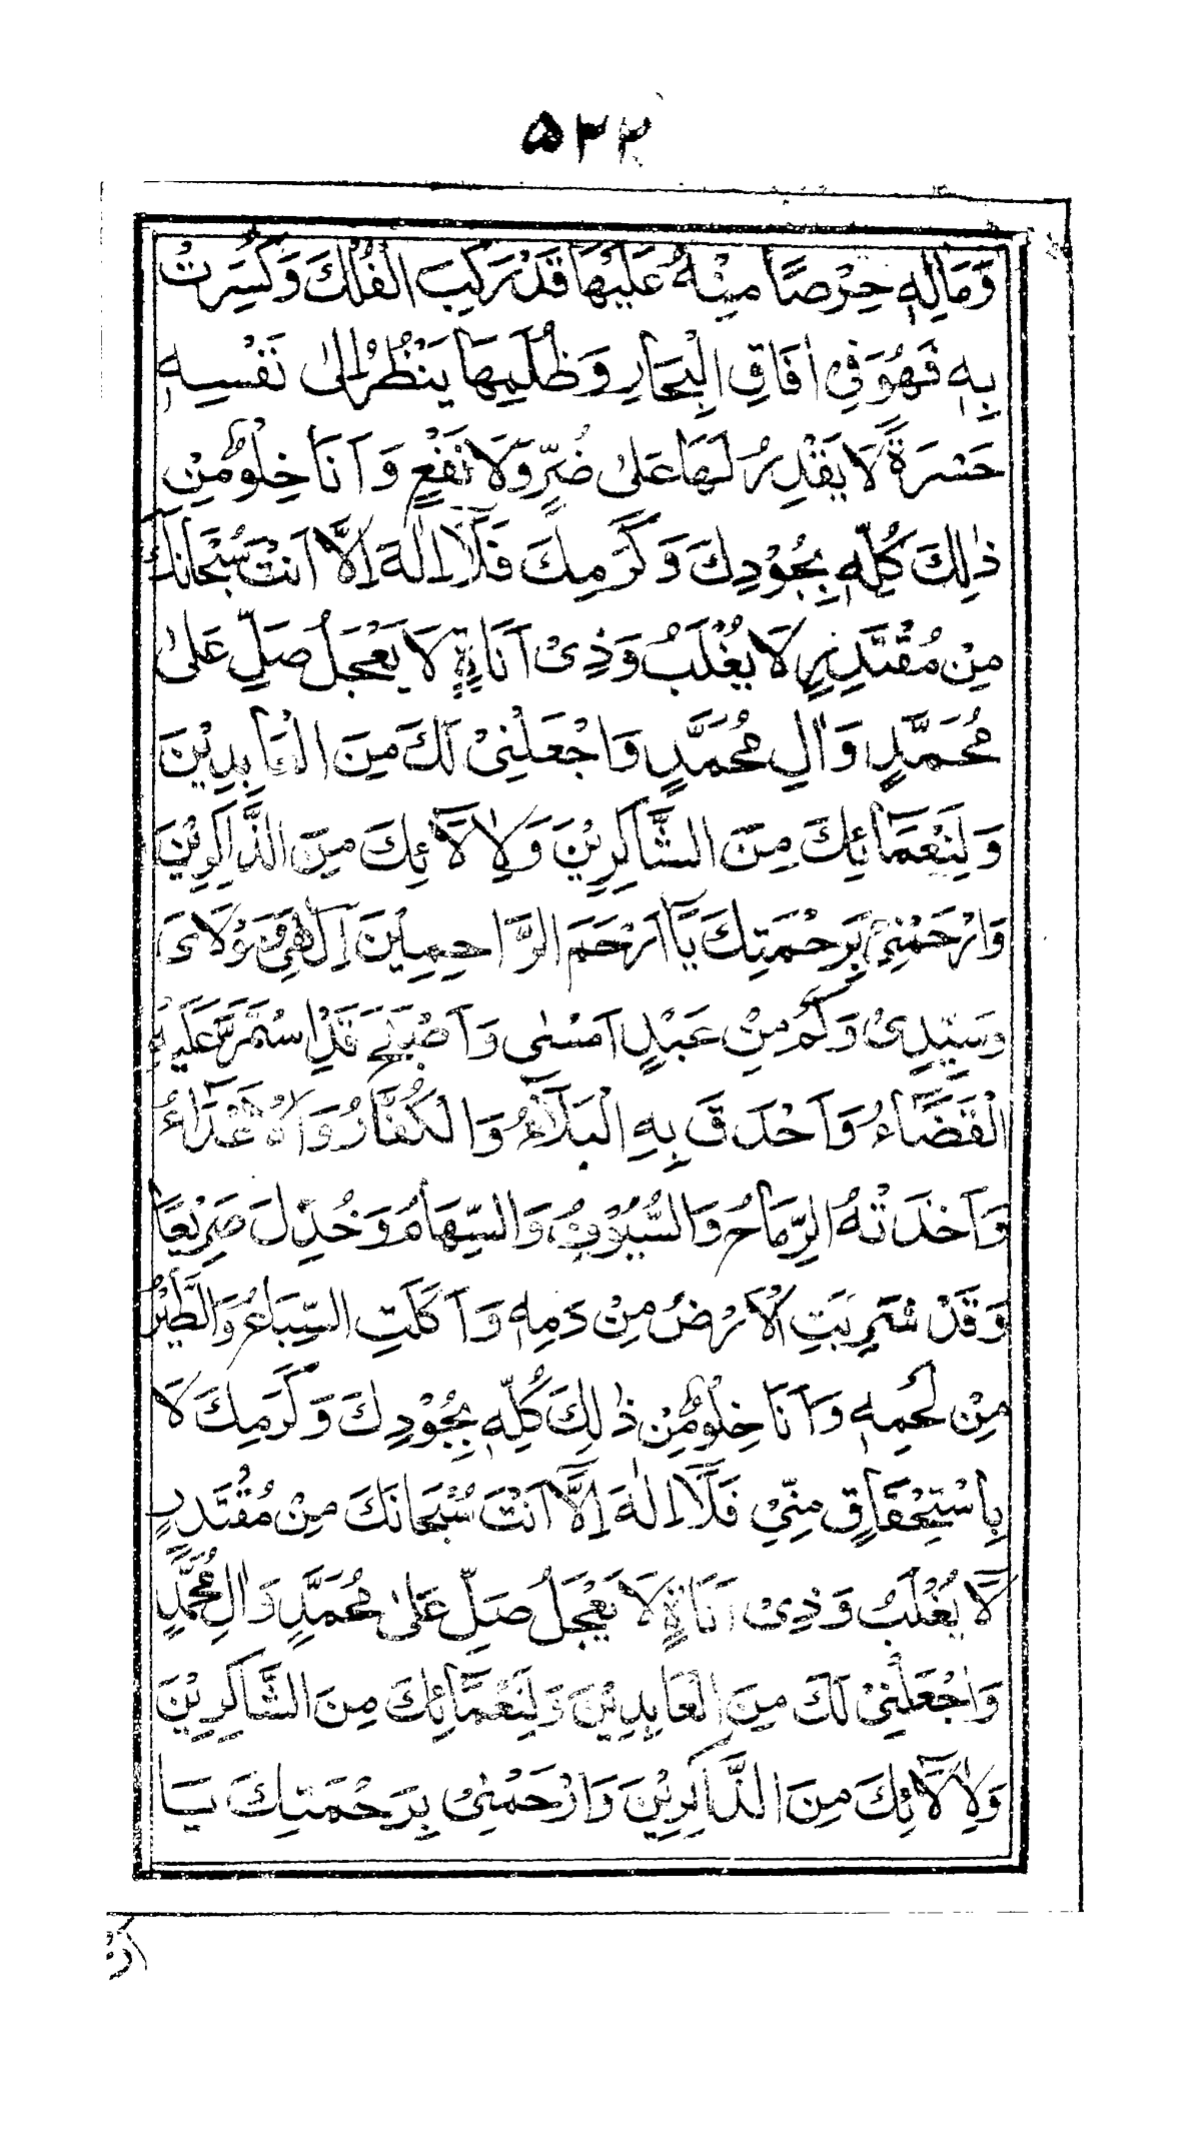 ۵۳۲
وَمَالِهِ حِرْصًا مِنْهُ عَلَيْهَا قَدْ رَكِبَ الْفُلْكَ وَكُسِرَتْ
بِهِ فَهُوَ فِي اٰفَاقِ الْبِحَارِ وَظُلَمِهَا يَنْظُرُ اِلٰى نَفْسِهِ
حَسْرَةً لَا يَقْدِرُ لَهَا عَلٰى ضُرٍّ وَلَا نَفْعٍ وَاَنَا خِلْوٌ مِنْ
ذٰلِكَ كُلِّهِ بِجُوْدِكَ وَكَرَمِكَ فَلَآ اِلٰهَ اِلَّا اَنْتَ سُبْحَانَكَ
مِنْ مُقْتَدِرٍ لَا يُغْلَبُ وَذِىْ اَنَاةٍ لَا يَعْجَلُ صَلِّ عَلٰى
مُحَمَّدٍ وَاٰلِ مُحَمَّدٍ وَاجْعَلْنِىْ لَكَ مِنَ الْعَابِدِيْنَ
وَلِنَعْمَآئِكَ مِنَ الشَّاكِرِيْنَ وَلِاٰلَآئِكَ مِنَ الذَّاكِرِيْنَ
وَارْحَمْنِىْ بِرَحْمَتِكَ يَآ اَرْحَمَ الرَّاحِمِيْنَ اِلٰهِىْ وَمَوْلَاىَ
وَسَيِّدِىْ وَكَمْ مِنْ عَبْدٍ اَمْسٰى وَاَصْبَحَ قَدِ اسْتَمَرَّ عَلَيْهِ
الْقَضَآءُ وَاَحْدَقَ بِهِ الْبَلَآءُ وَالْكُفَّارُ وَالْاَعْدَآءُ
وَاَخَذَتْهُ الرِّمَاحُ وَالسُّيُوْفُ وَالسِّهَامُ وَجُدِّلَ صَرِيْعًا
وَقَدْ شَرِبَتِ الْاَرْضُ مِنْ دَمِهِ وَاَكَلَتِ السِّبَاعُ وَالطَّيْرُ
مِنْ لَحْمِهِ وَاَنَا خِلْوٌ مِنْ ذٰلِكَ كُلِّهِ بِجُوْدِكَ وَكَرَمِكَ لَا
بِاسْتِحْقَاقٍ مِنِّىْ فَلَآ اِلٰهَ اِلَّا اَنْتَ سُبْحَانَكَ مِنْ مُقْتَدِرٍ
لَا يُغْلَبُ وَذِىْ اَنَاةٍ لَا يَعْجَلُ صَلِّ عَلٰى مُحَمَّدٍ وَاٰلِ مُحَمَّدٍ
وَاجْعَلْنِىْ لَكَ مِنَ الْعَابِدِيْنَ وَلِنَعْمَآئِكَ مِنَ الشَّاكِرِيْنَ
وَلِاٰلَآئِكَ مِنَ الذَّاكِرِيْنَ وَارْحَمْنِىْ بِرَحْمَتِكَ يَا